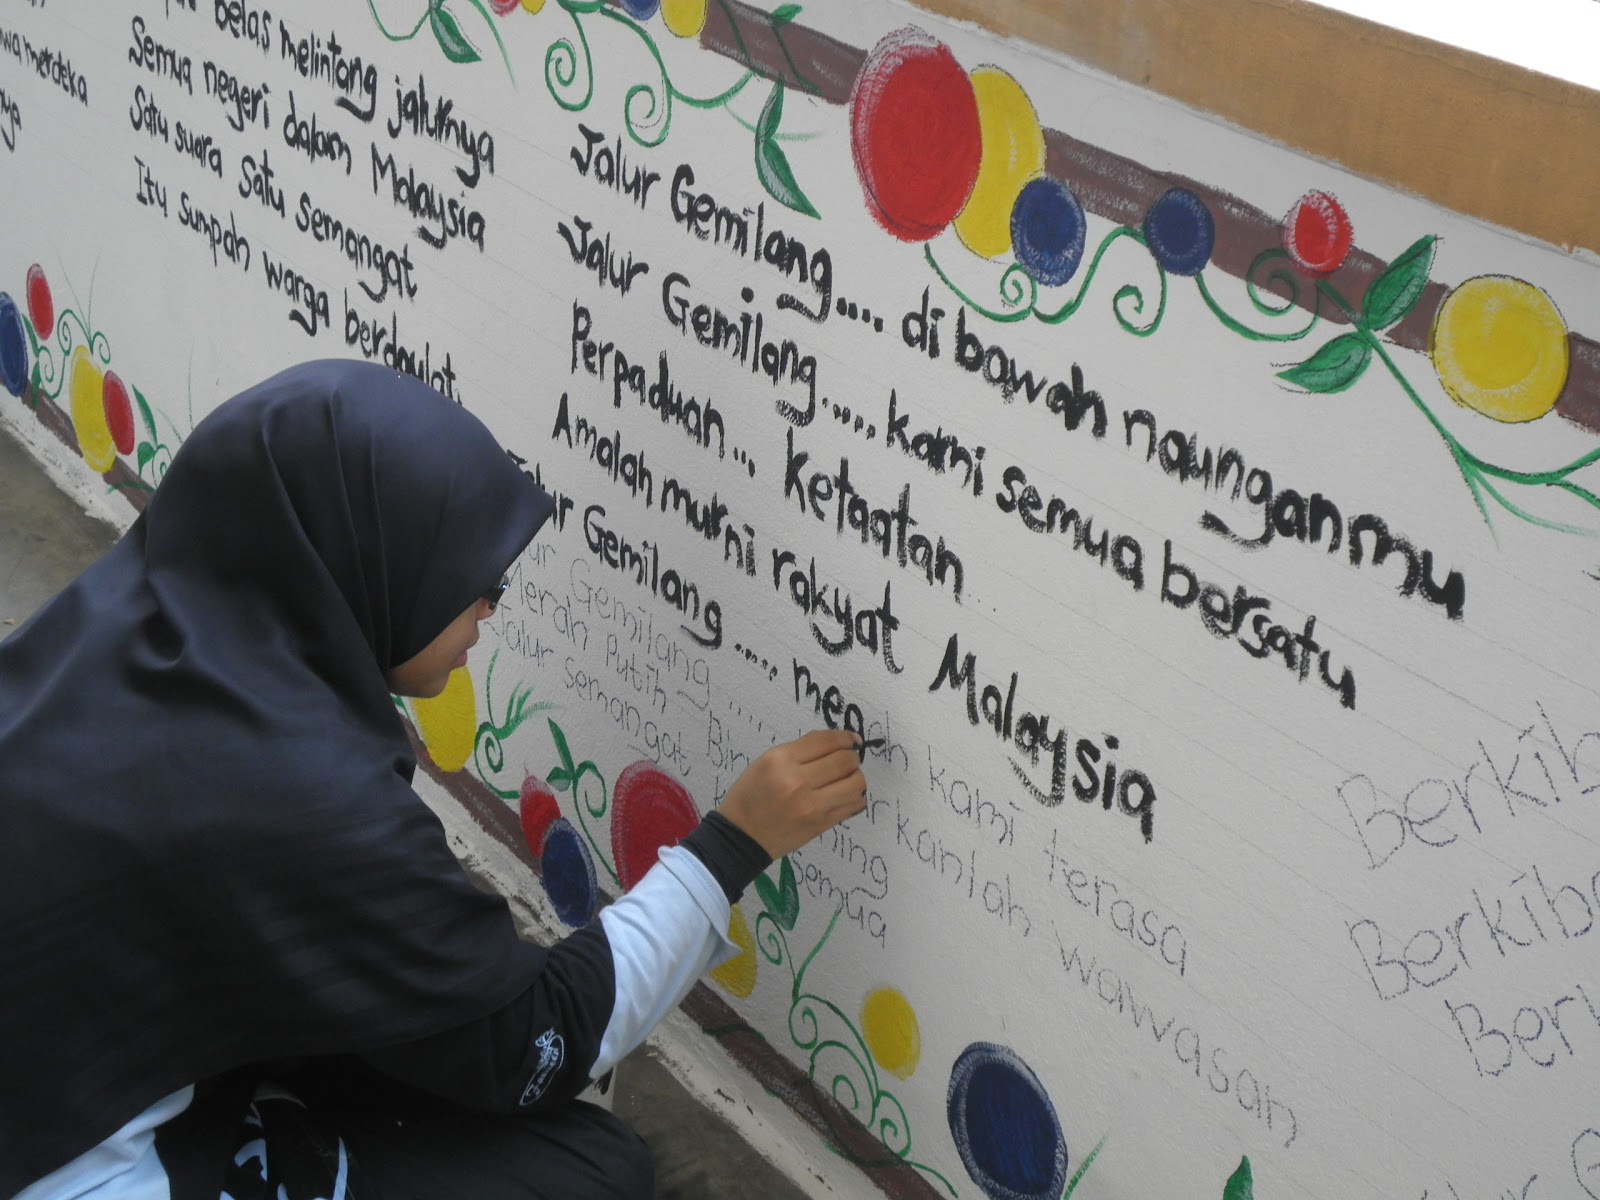 wa merdeka
belas melintang jalurnya
Semua negeri dalam Malaysia
Satu suara satu semangat
Itu sumpah warga berdaulat
Jalur Gemilang.... di bawah naunganmu
Jalur Gemilang..... kami semua bersatu
Perpaduan... ketaatan...
Amalan murni rakyat Malaysia
Jalur Gemilang..... megah kami terasa
Gemilang ..... kibarkanlah wawasan
Merah Putih
Jalur semangat
semua
Berkib
Berkiba
Berk